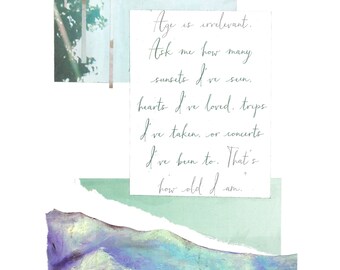 Age is irrelevant.
Ask me how many
sunsets I've seen,
hearts I've loved, trips
I've taken, or concerts
I've been to. That's
how old I am."